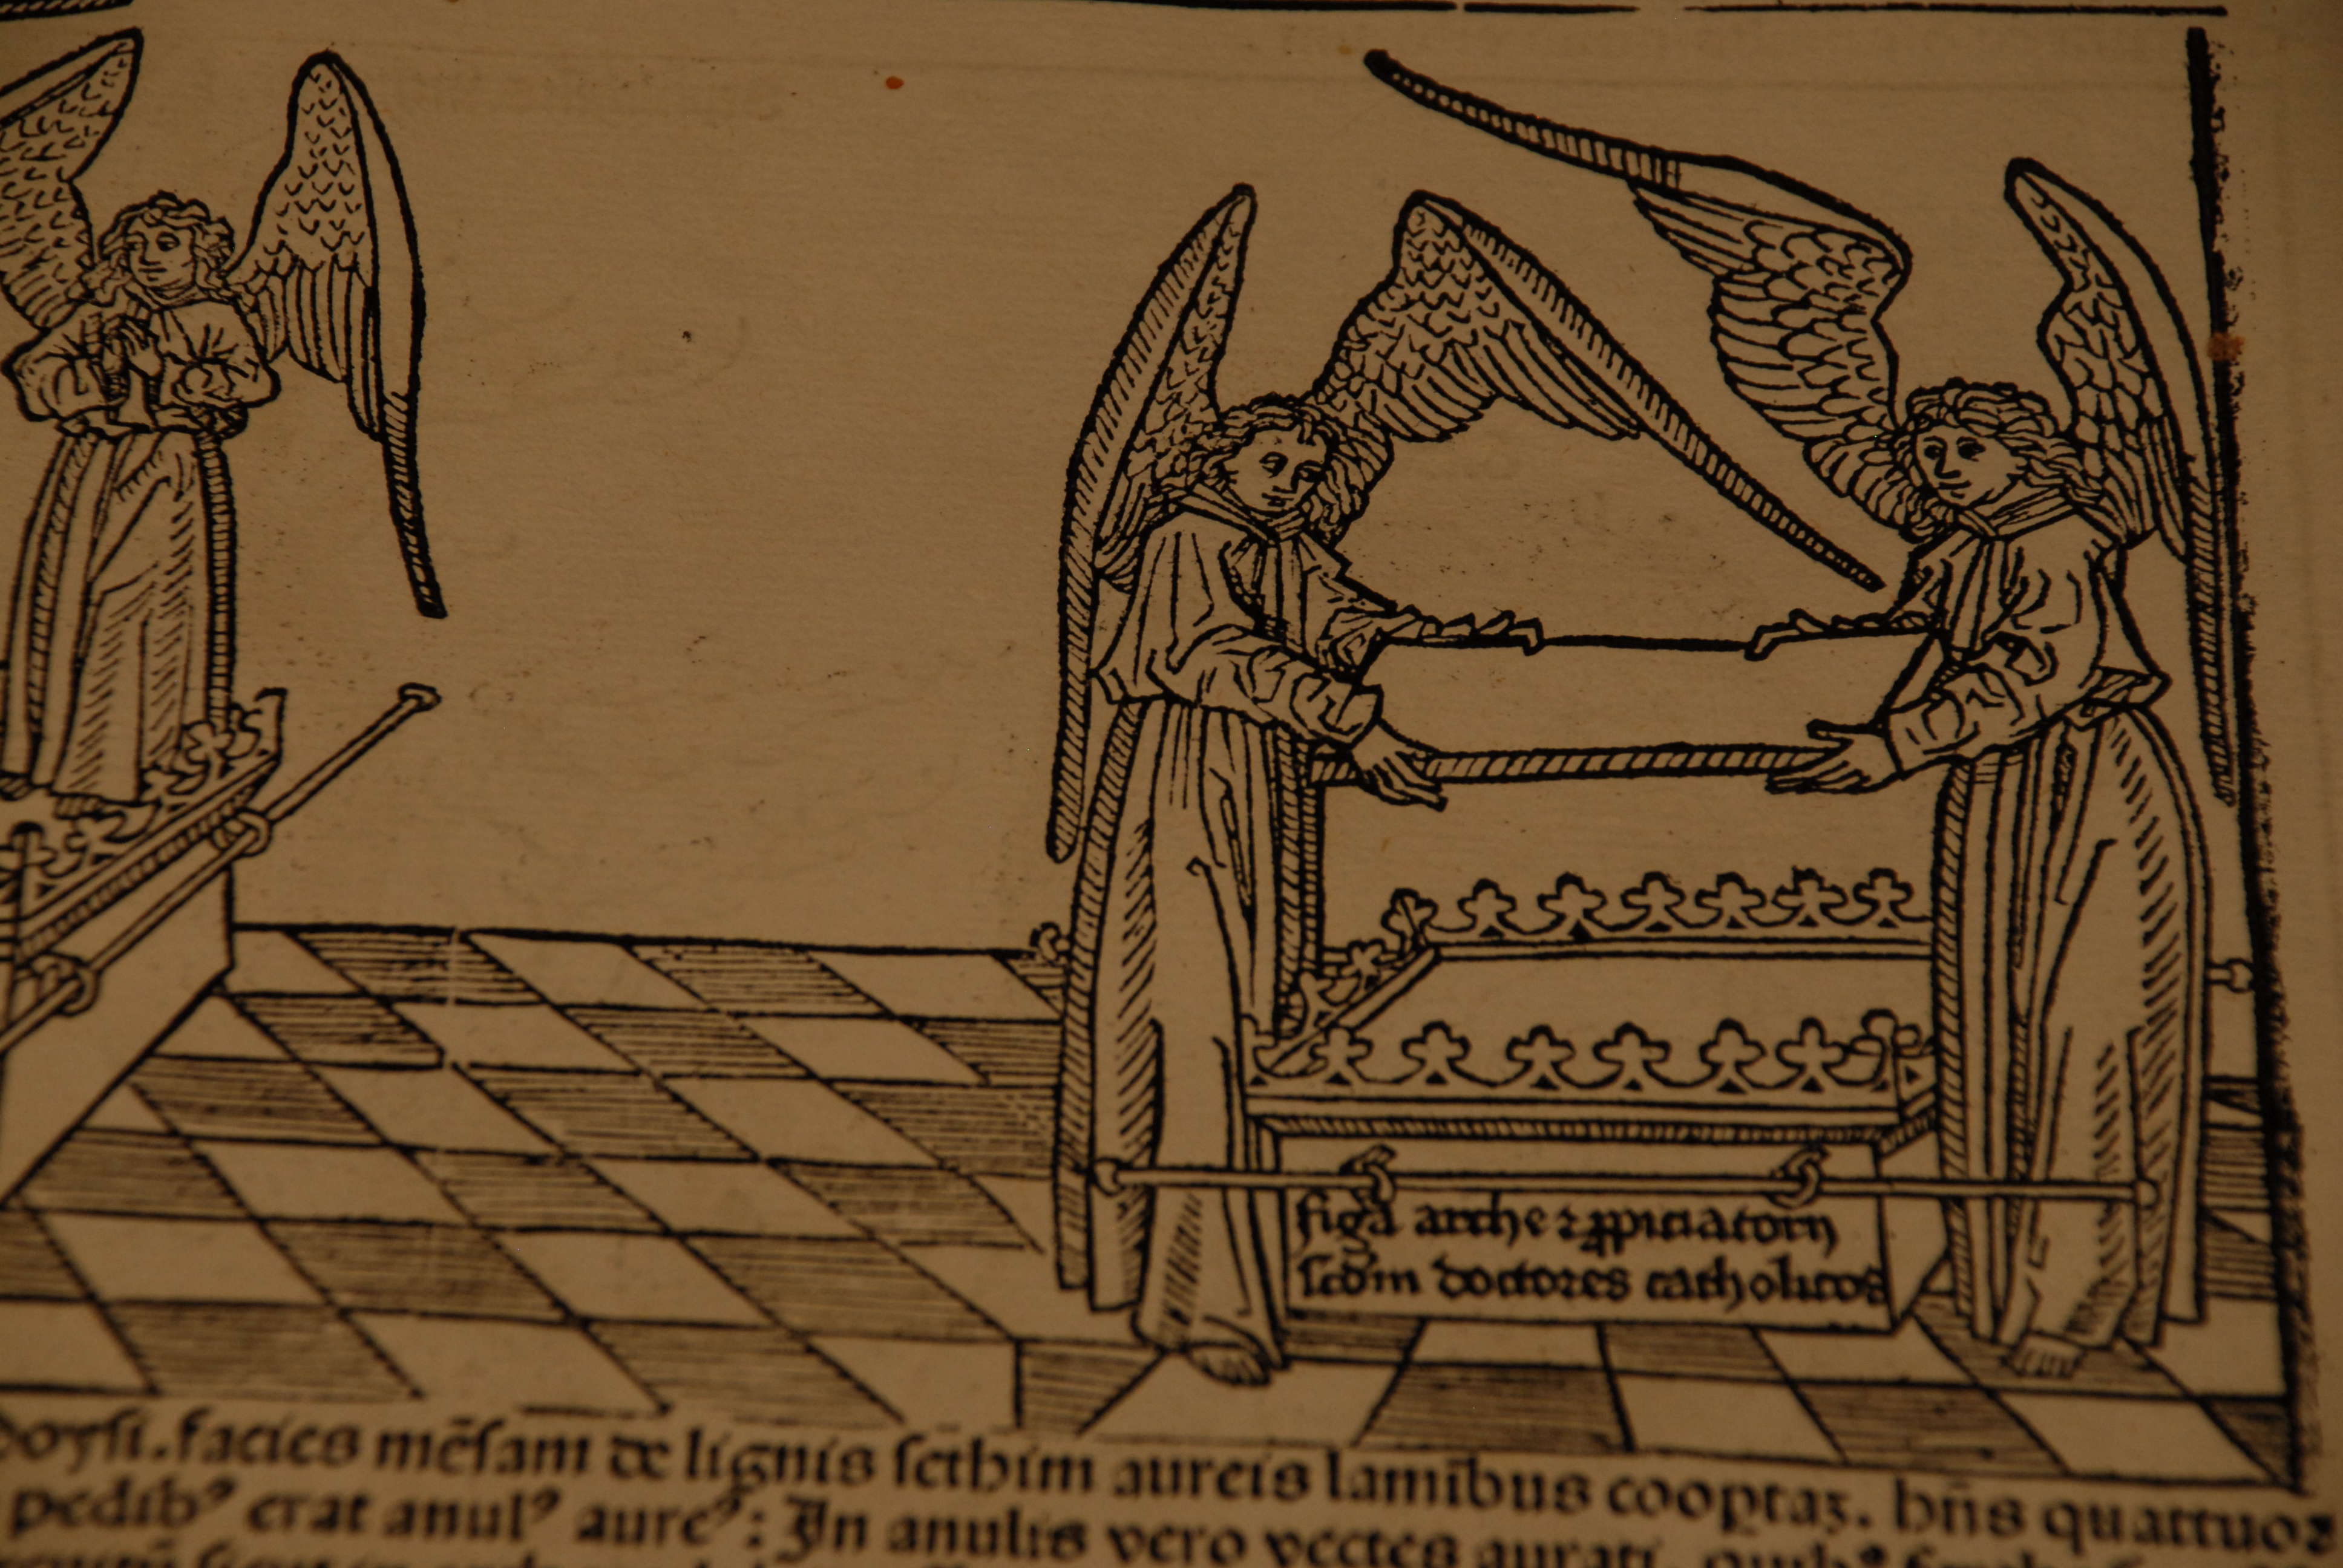 figa arche ⁊ ꝓpiciatorij
scdm doctores catholicos
oysi. facies mēsam de lignis sethim aureis lamībus cooptaꝫ. hn̄s quattuoꝛ
pedibꝰ erat anulꝰ aureꝰ: In anulis vero vectes aurati.